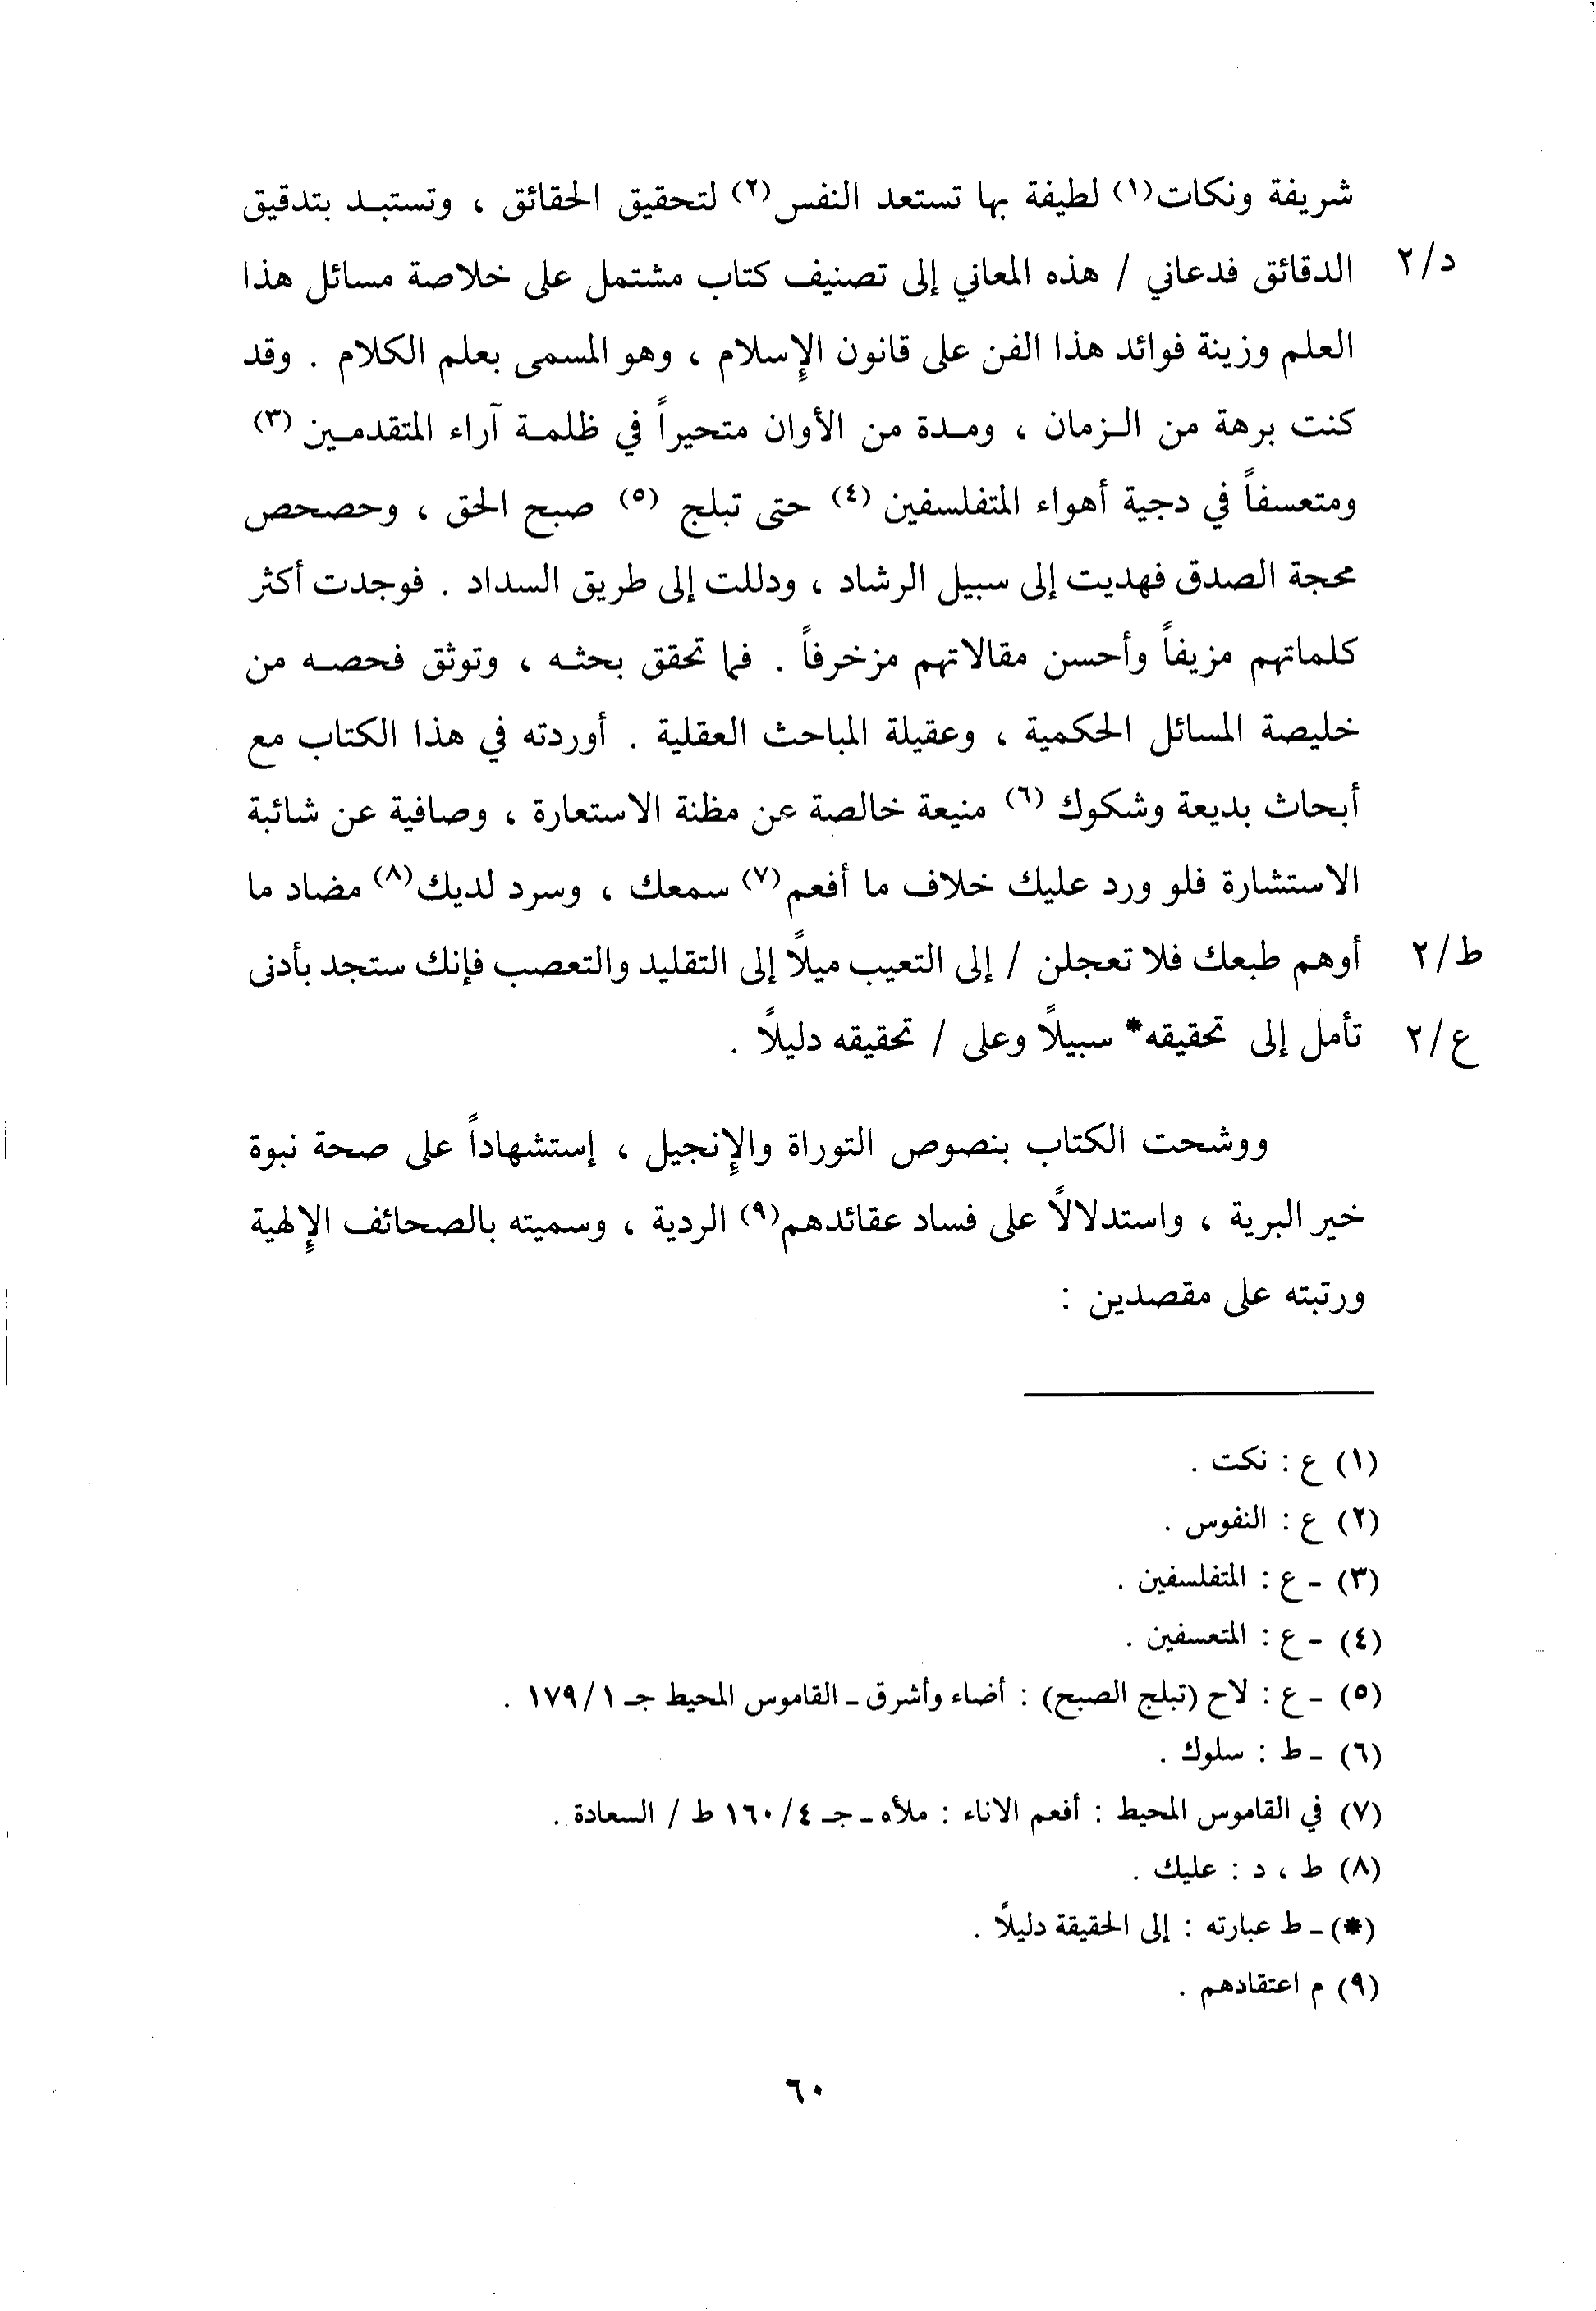 شريفة ونكات(١) لطيفة بها تستعد النفس(٢) لتحقيق الحقائق ، وتستبد بتدقيق
د/٢ الدقائق فدعاني / هذه المعاني إلى تصنيف كتاب مشتمل على خلاصة مسائل هذا
العلم وزينة فوائد هذا الفن على قانون الإسلام ، وهو المسمى بعلم الكلام . وقد
كنت برهة من الزمان ، ومدة من الأوان متحيراً في ظلمة آراء المتقدمين (٣)
ومتعسفاً في دجية أهواء المتفلسفين (٤) حتى تبلج (٥) صبح الحق ، وحصحص
محجة الصدق فهديت إلى سبيل الرشاد ، ودللت إلى طريق السداد . فوجدت أكثر
كلماتهم مزيفاً وأحسن مقالاتهم مزخرفاً . فما تحقق بحثه ، وتوثق فحصه من
خليصة المسائل الحكمية ، وعقيلة المباحث العقلية . أوردته في هذا الكتاب مع
أبحاث بديعة وشكوك (٦) منيعة خالصة عن مظنة الاستعارة ، وصافية عن شائبة
الاستشارة فلو ورد عليك خلاف ما أفعم(٧) سمعك ، وسرد لديك(٨) مضاد ما
ط/٢ أوهم طبعك فلا تعجلن / إلى التعيب ميلاً إلى التقليد والتعصب فإنك ستجد بأدنى
ع/٢ تأمل إلى تحقيقه* سبيلاً وعلى / تحقيقه دليلاً .
ووشحت الكتاب بنصوص التوراة والإنجيل ، إستشهاداً على صحة نبوة
خير البرية ، واستدلالاً على فساد عقائدهم(٩) الردية ، وسميته بالصحائف الإلهية
ورتبته على مقصدين :
(١) ع : نكت .
(٢) ع : النفوس .
(٣) - ع : المتفلسفين .
(٤) - ع : المتعسفين .
(٥) - ع : لاح (تبلج الصبح) : أضاء وأشرق - القاموس المحيط جـ ١٧٩/١ .
(٦) - ط : سلوك .
(٧) في القاموس المحيط : أفعم الاناء : ملأه - جـ ١٦٠/٤ ط / السعادة .
(٨) ط ، د : عليك .
(*) - ط عبارته : إلى الحقيقة دليلاً .
(٩) م اعتقادهم .
٦٠